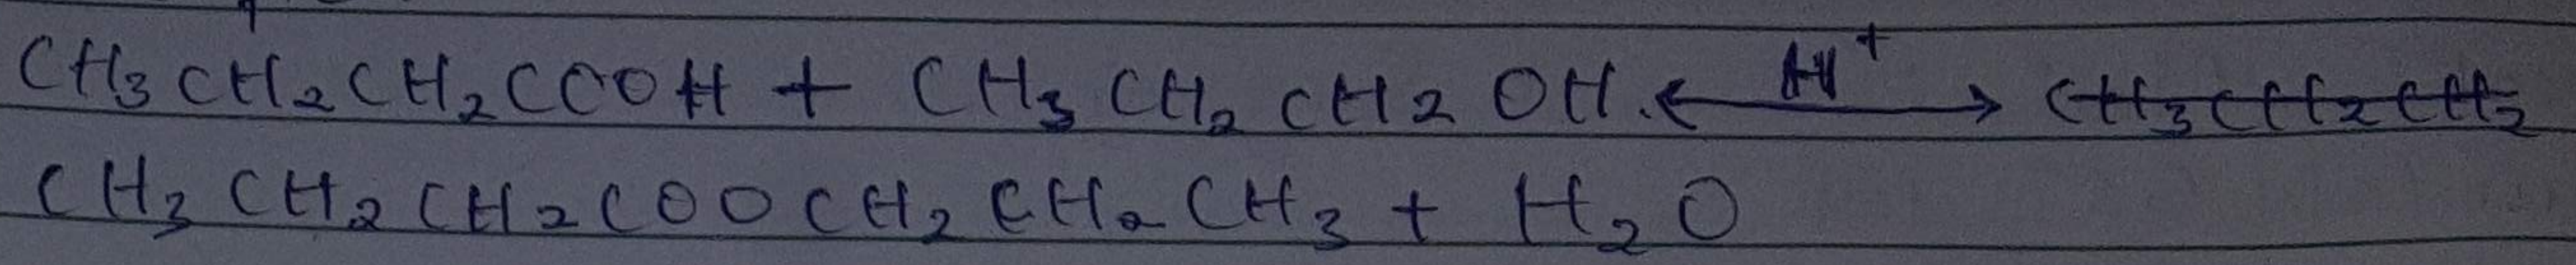 CH₃CH₂CH₂CCOH + CH₃CH₂CH₂OH. <—H⁺—> ~~CH₃CH₂CH₂~~
CH₃CH₂CH₂COOCH₂CH₂CH₃ + H₂O